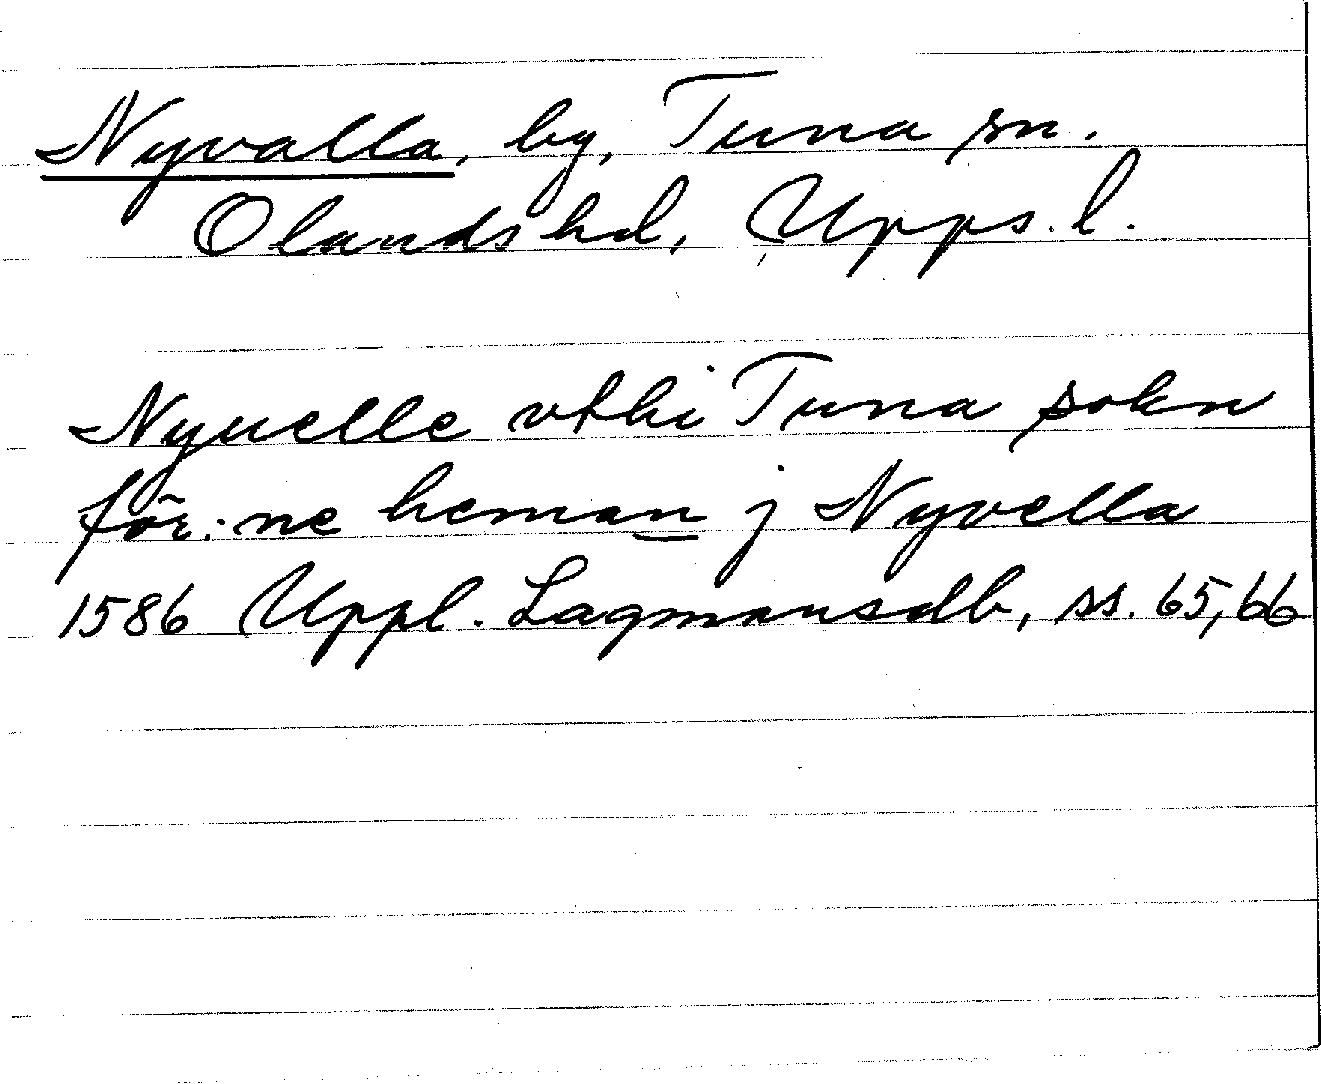 Nyvalla, by, Tuna sn.
Olands hd, Upps. l.
Nyuelle vthi Tuna sokn
för:ne heman j Nyvella
1586 Uppl. Lagmansdb, ss. 65, 66